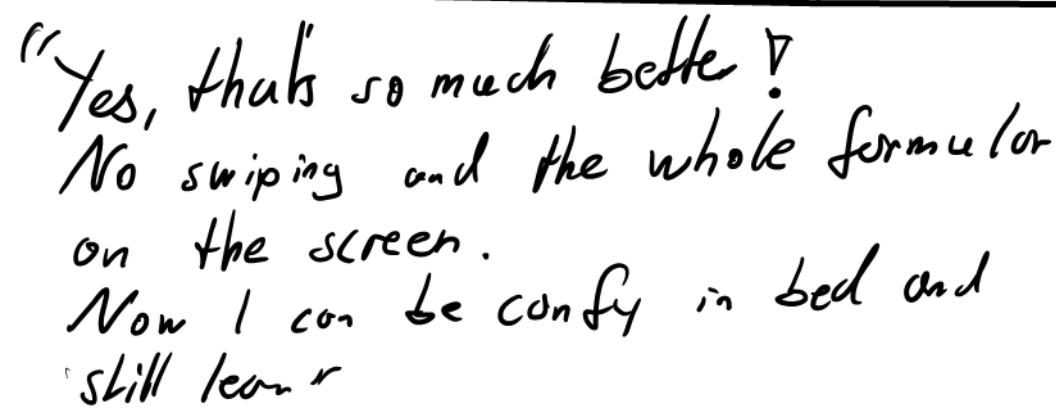 "Yes, that's so much better!
No swiping and the whole formular
on the screen.
Now I can be comfy in bed and
still learn"